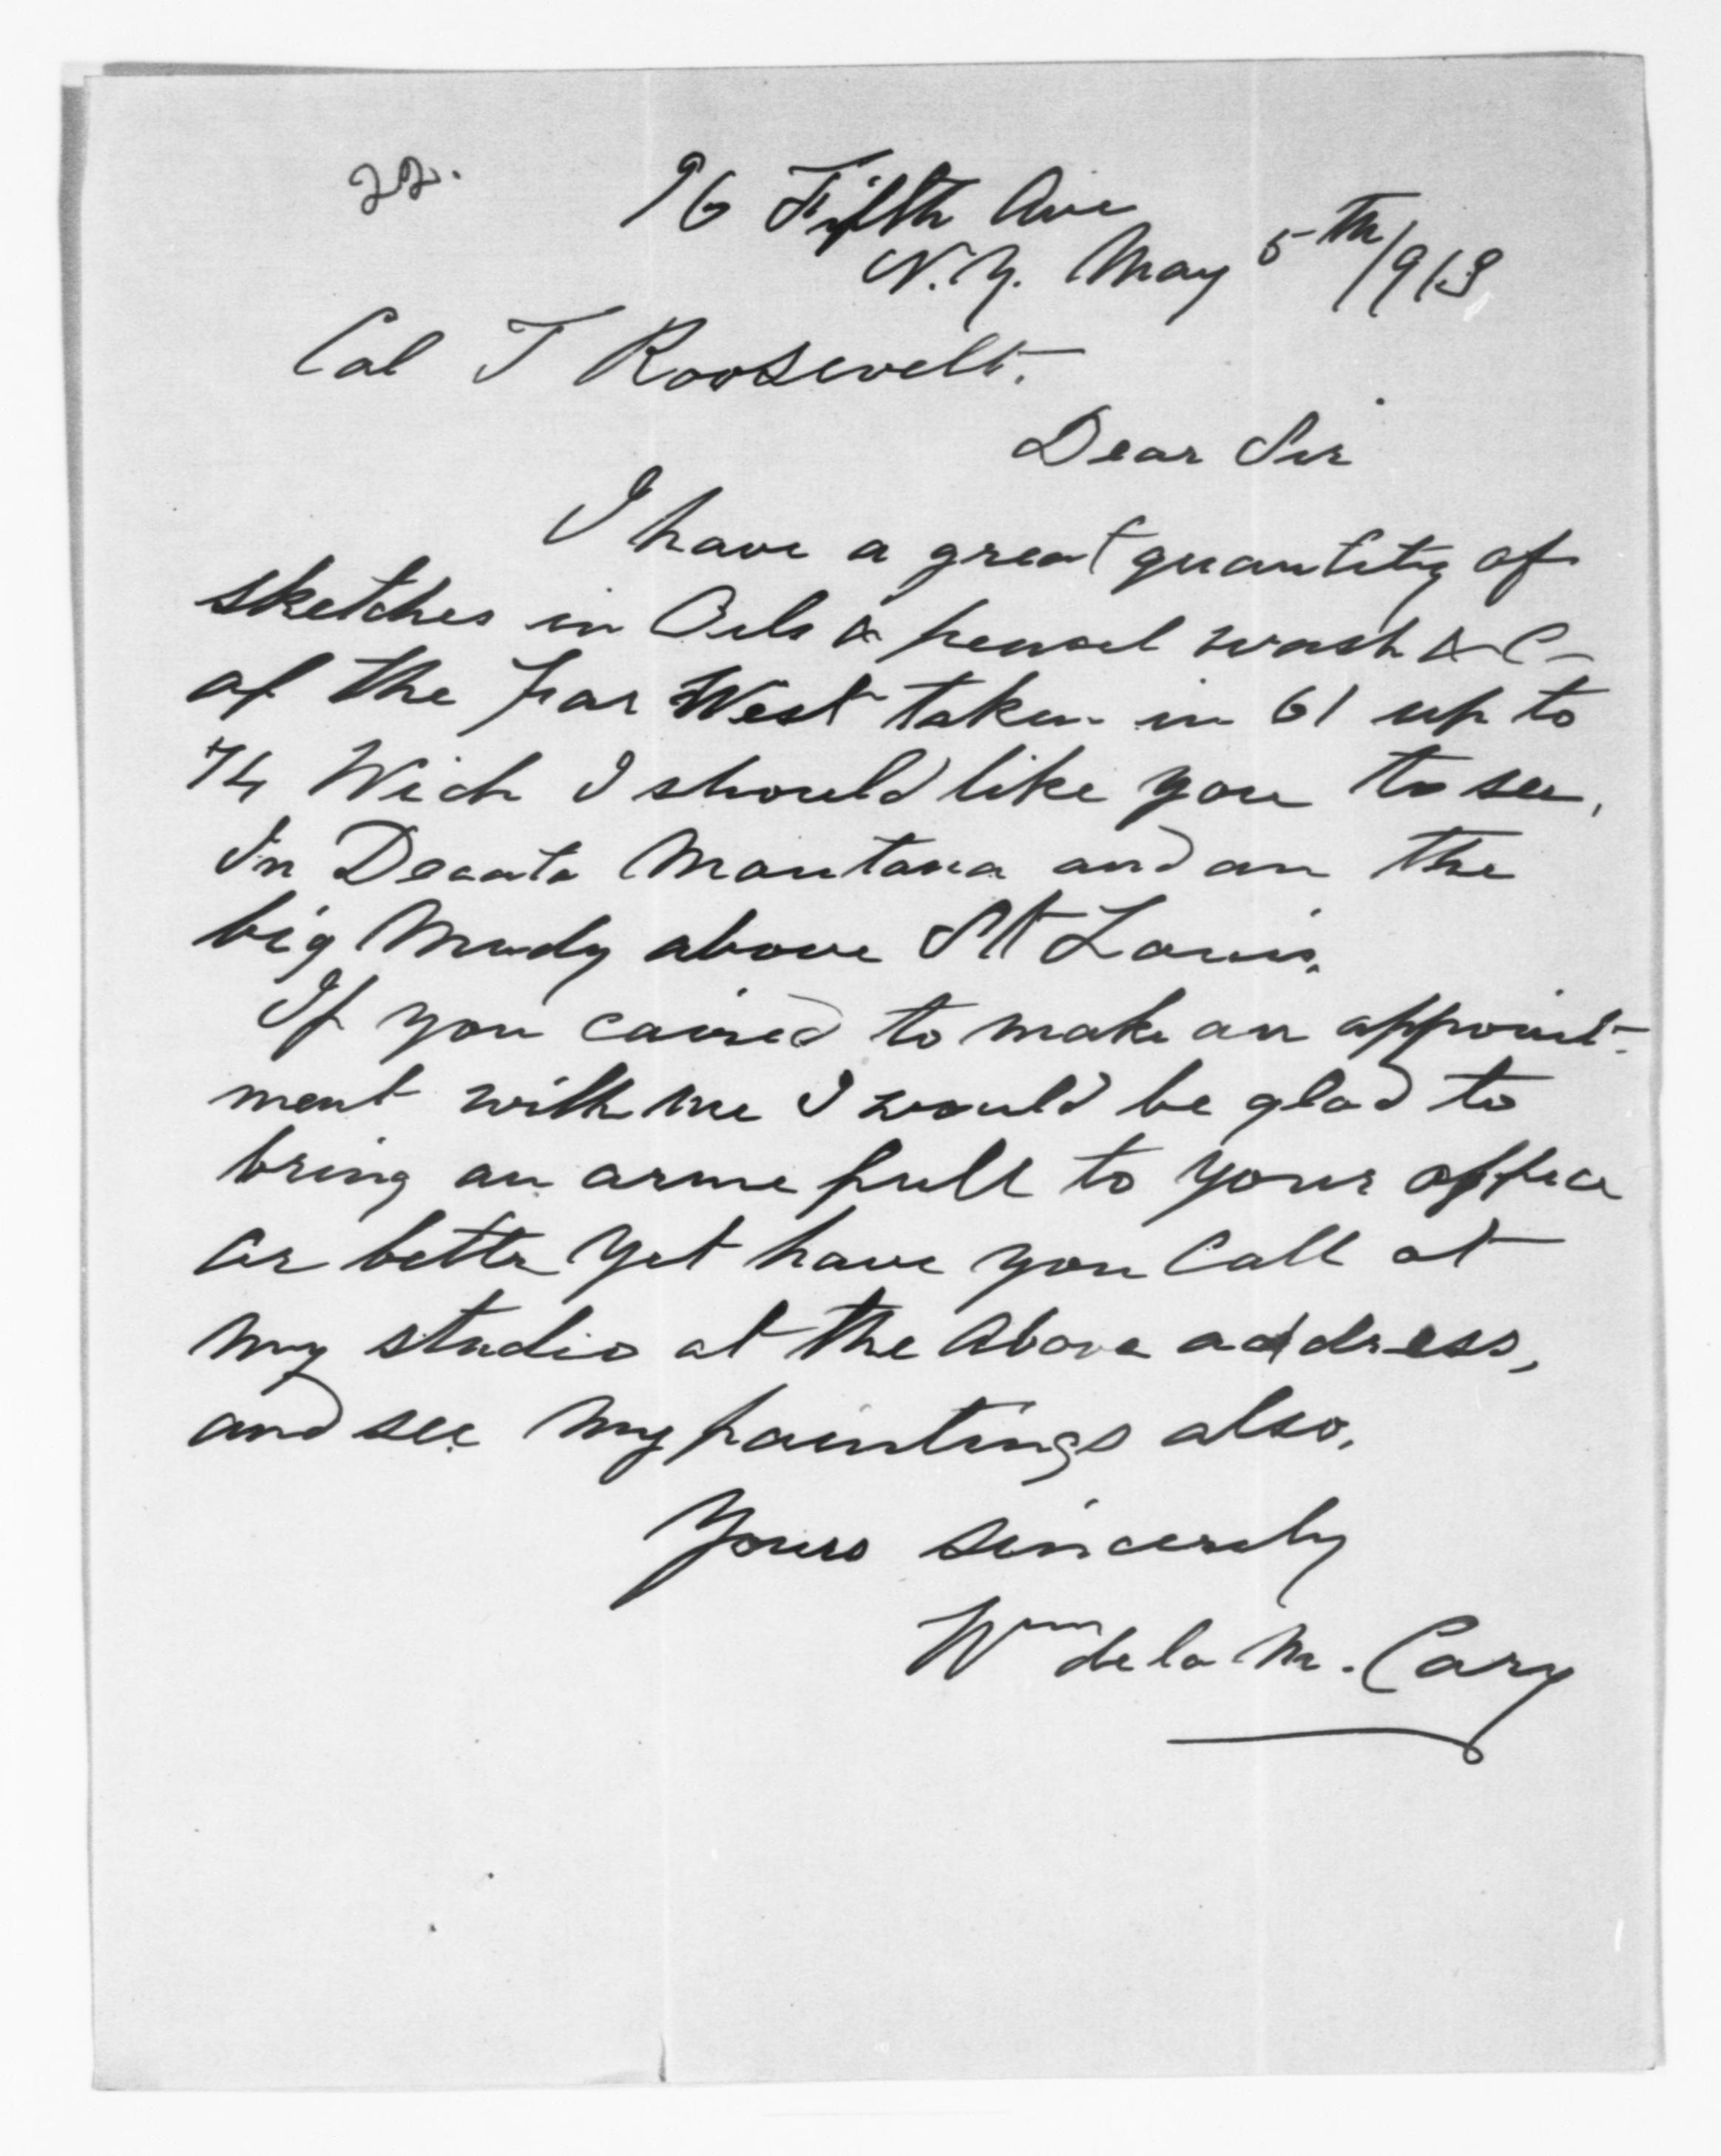 22.
96 Fifth Ave
N.Y. May 5th/913
Col T Roosevelt.
Dear Sir
I have a great quantity of
sketches in Oils & pencil wash & C
of the far West taken in 61 up to
74 Wich I should like you to see,
In Decota Montana and on the
big Mudy above St Louis.
If you caired to make an appoint-
ment with me I would be glad to
bring an arme full to your office
or better yet have you Call at
my studio at the above address,
and see my paintings also.
Yours sincerely
Wm de la M. Cary